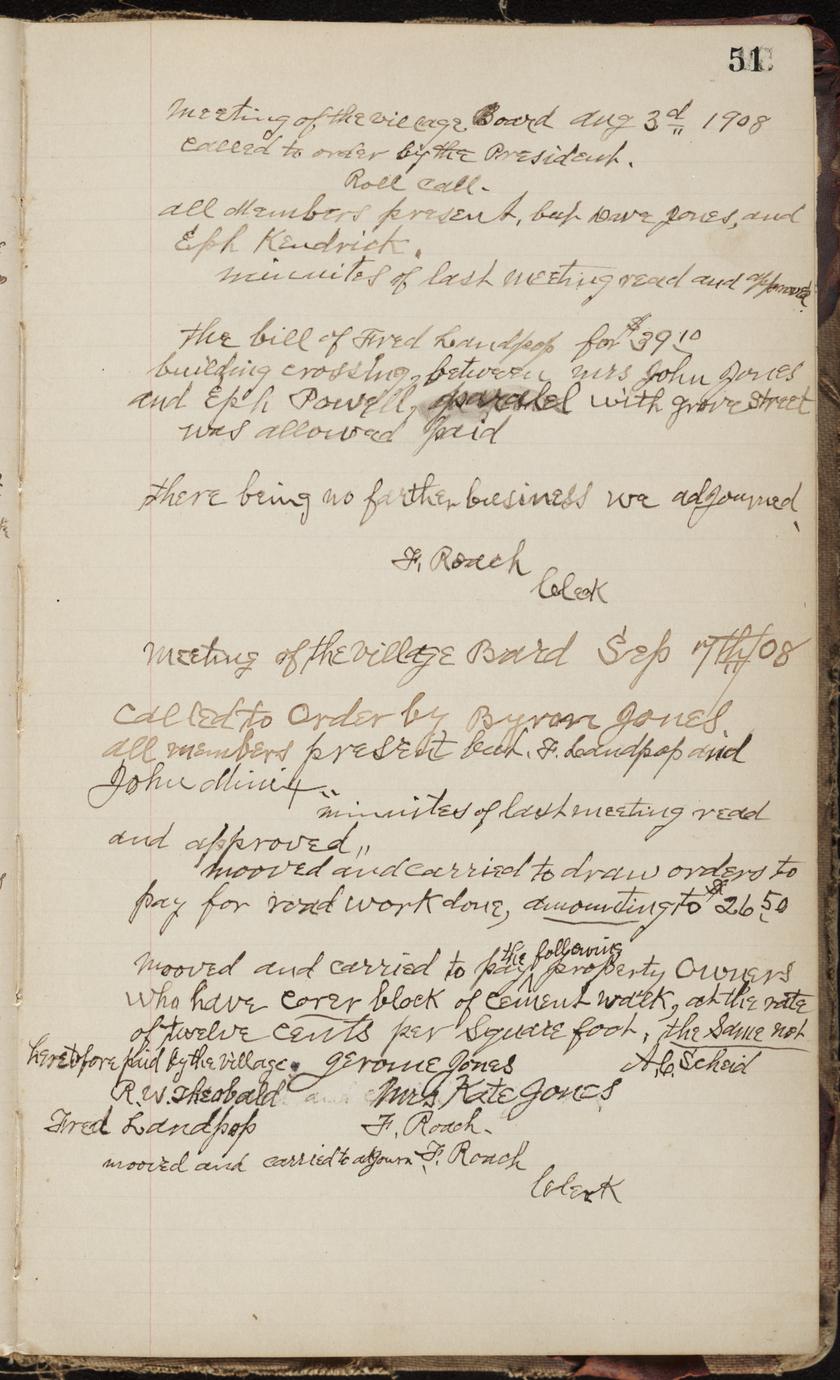 51
Meeting of the village Board Aug 3d 1908
called to order by the President.
Roll Call.
all Members present, but Dave Jones, and
Eph Kendrick.
minuites of last meeting read and approved.
the bill of Fred Landpop for $39 10
building crossing, between mrs John Jones
and Eph Powell, paralel with grove Street
was allowed paid
there being no farther business we adjourned,
F. Roach
Clerk
Meeting of the village Board Sep 7th/08
Called to Order by Byron Jones
all members present but F. Landpop and
John
minuites of last meeting read
and approved,,
mooved and carried to draw orders to
pay for road work done, amounting to $26 50
the following
mooved and carried to pay property Owners
who have corer block of cement walk, at the rate
of twelve cents per Square foot, the Same not
heretofore paid by the village. Gerome Jones A.C. Scheid
R.W. Theobald Mrs Kate Jones
Fred Landpop F. Roach.
mooved and carried to adjourn F. Roach
Clerk